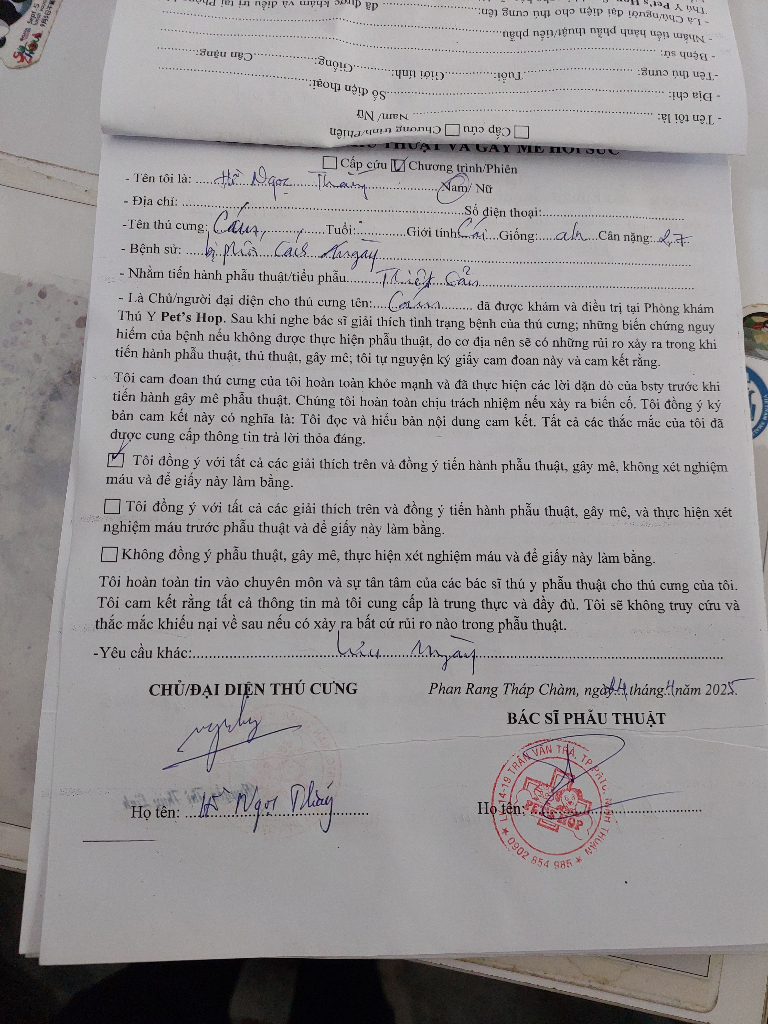 Thú Y Pet's Hop
- Là Chủ/người đại diện cho thú cưng tên: đã được khám và điều trị tại Phòng
- Nhằm tiến hành phẫu thuật/tiểu phẫu
- Bệnh sử:
-Tên thú cưng: Tuổi: Giới tính: Giống: Cân nặng:
- Địa chỉ: Số điện thoại:
- Tên tôi là: Nam/ Nữ
Cấp cứu Chương trình/Phiên
THUẬT VÀ GÂY MÊ HỒI SỨC
Cấp cứu Chương trình/Phiên
- Tên tôi là: Hồ Ngọc Nam/ Nữ
- Địa chỉ: Số điện thoại:
-Tên thú cưng: Tuổi: Giới tính Cái Giống: Cân nặng: 2,7
- Bệnh sử:
- Nhằm tiến hành phẫu thuật/tiểu phẫu
- Là Chủ/người đại diện cho thú cưng tên: đã được khám và điều trị tại Phòng khám
Thú Y Pet's Hop. Sau khi nghe bác sĩ giải thích tình trạng bệnh của thú cưng; những biến chứng nguy
hiểm của bệnh nếu không được thực hiện phẫu thuật, do cơ địa nên sẽ có những rủi ro xảy ra trong khi
tiến hành phẫu thuật, thủ thuật, gây mê; tôi tự nguyện ký giấy cam đoan này và cam kết rằng.
Tôi cam đoan thú cưng của tôi hoàn toàn khỏe mạnh và đã thực hiện các lời dặn dò của bsty trước khi
tiến hành gây mê phẫu thuật. Chúng tôi hoàn toàn chịu trách nhiệm nếu xảy ra biến cố. Tôi đồng ý ký
bản cam kết này có nghĩa là: Tôi đọc và hiểu bản nội dung cam kết. Tất cả các thắc mắc của tôi đã
được cung cấp thông tin trả lời thỏa đáng.
Tôi đồng ý với tất cả các giải thích trên và đồng ý tiến hành phẫu thuật, gây mê, không xét nghiệm
máu và để giấy này làm bằng.
Tôi đồng ý với tất cả các giải thích trên và đồng ý tiến hành phẫu thuật, gây mê, và thực hiện xét
nghiệm máu trước phẫu thuật và để giấy này làm bằng.
Không đồng ý phẫu thuật, gây mê, thực hiện xét nghiệm máu và để giấy này làm bằng.
Tôi hoàn toàn tin vào chuyên môn và sự tận tâm của các bác sĩ thú y phẫu thuật cho thú cưng của tôi.
Tôi cam kết rằng tất cả thông tin mà tôi cung cấp là trung thực và đầy đủ. Tôi sẽ không truy cứu và
thắc mắc khiếu nại về sau nếu có xảy ra bất cứ rủi ro nào trong phẫu thuật.
-Yêu cầu khác:
CHỦ/ĐẠI DIỆN THÚ CƯNG
Phan Rang Tháp Chàm, ngày tháng năm 2025
BÁC SĨ PHẪU THUẬT
14-19 TRẦN VĂN TRÀ, TP.PRTC, NINH THUẬN
PET'S HOP
0902 854 985
Họ tên: Hồ Ngọc
Họ tên: